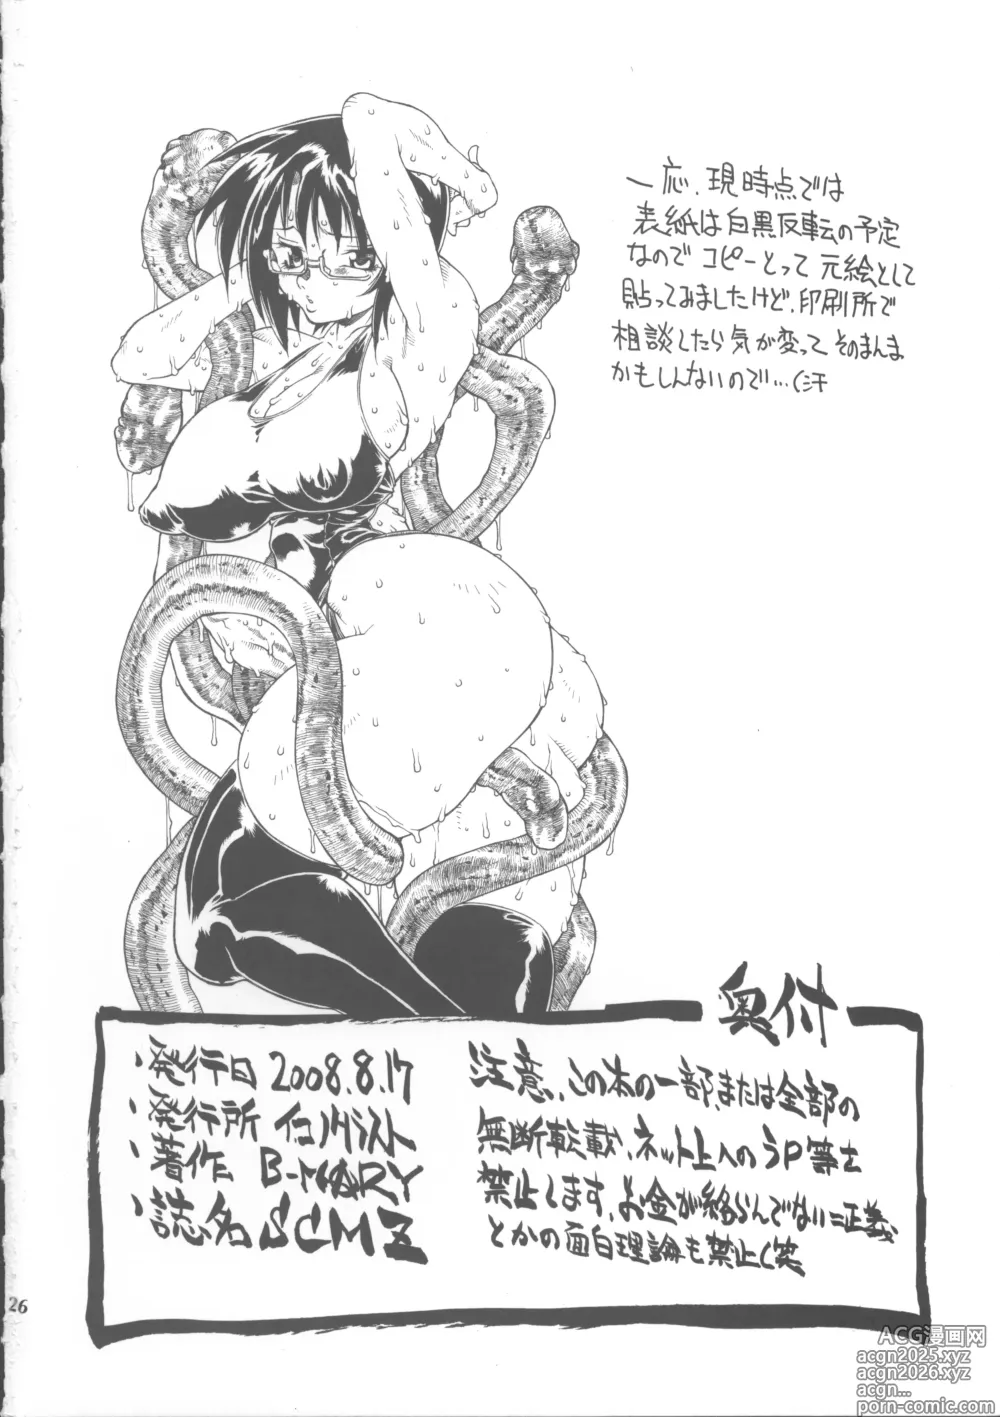 一応、現時点では
表紙は白黒反転の予定
なので コピーとって 元絵として
貼ってみましたけど、印刷所で
相談したら気が変って そのまんま
かもしんないので…(汗
奥付
・発行日 2008.8.17
・発行所
・著作
・誌名 SCMZ
注意、この本の一部、または全部の
無断転載、ネット上へのうP等を
禁止します、お金が絡らんでない=正義
とかの面白理論も禁止(笑
26
ACG漫画网
acgn2025.xyz
acgn2026.xyz
acgn...
porn-comic.com